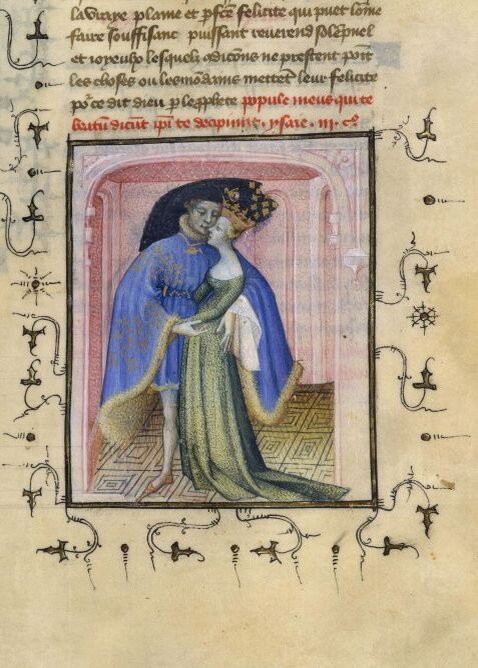 la vraye plaine et pfcē felicite qui puet lōme
faire souffisant puissant reverend solēpnel
et ioyeulx lesquelx ꝯdicōns ne prestent point
les choses ou les mōdains mettēt leur felicite
po'ce dit dieu p le ꝓphete popule meus qui te
beatū dicūt ipī te decipiunt. ysaie. iii. c°